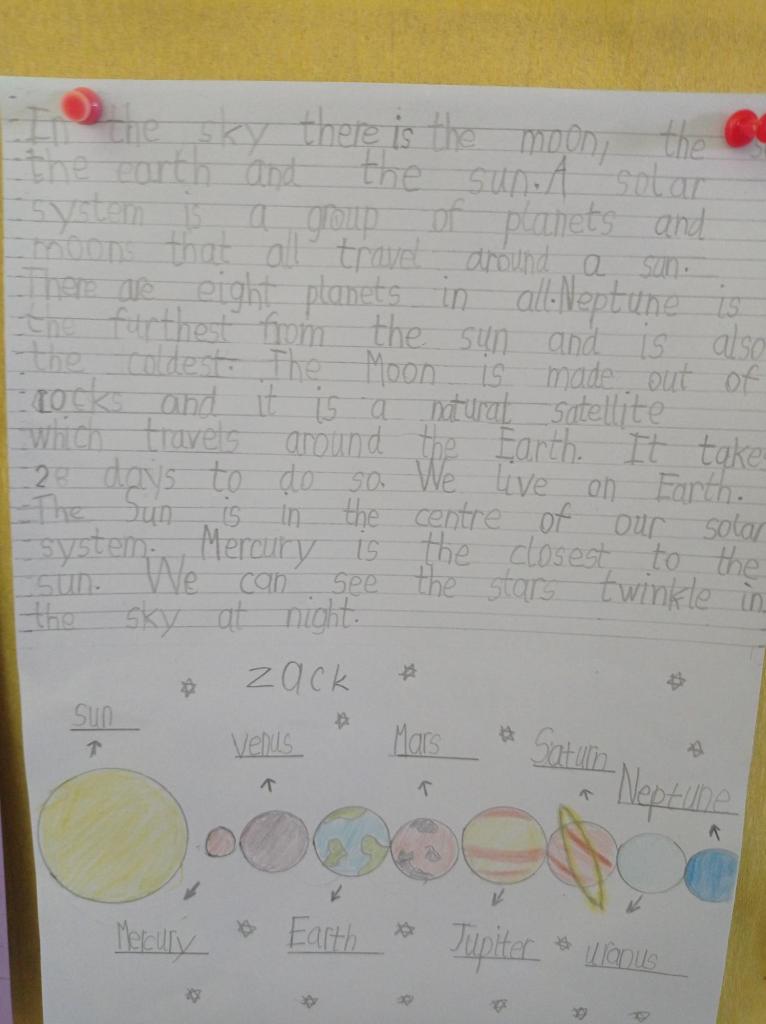 In the sky there is the moon, the
the earth and the sun. A solar
system is a group of planets and
moons that all travel around a sun.
There are eight planets in all. Neptune is
the furthest from the sun and is also
the coldest. The Moon is made out of
rocks and it is a natural satellite
which travels around the Earth. It take
28 days to do so. We live on Earth.
The Sun is in the centre of our solar
system. Mercury is the closest to the
sun. We can see the stars twinkle in
the sky at night.
zack
sun
Venus
Mars
Saturn
Neptune
Mercury
Earth
Jupiter
uranus